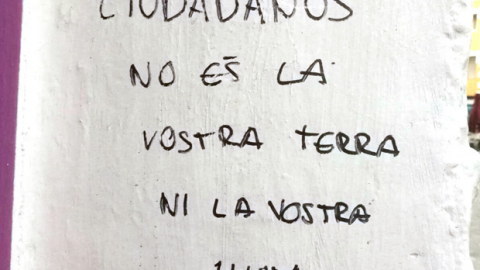 CIUDADANOS
NO ES LA
VOSTRA TERRA
NI LA VOSTRA